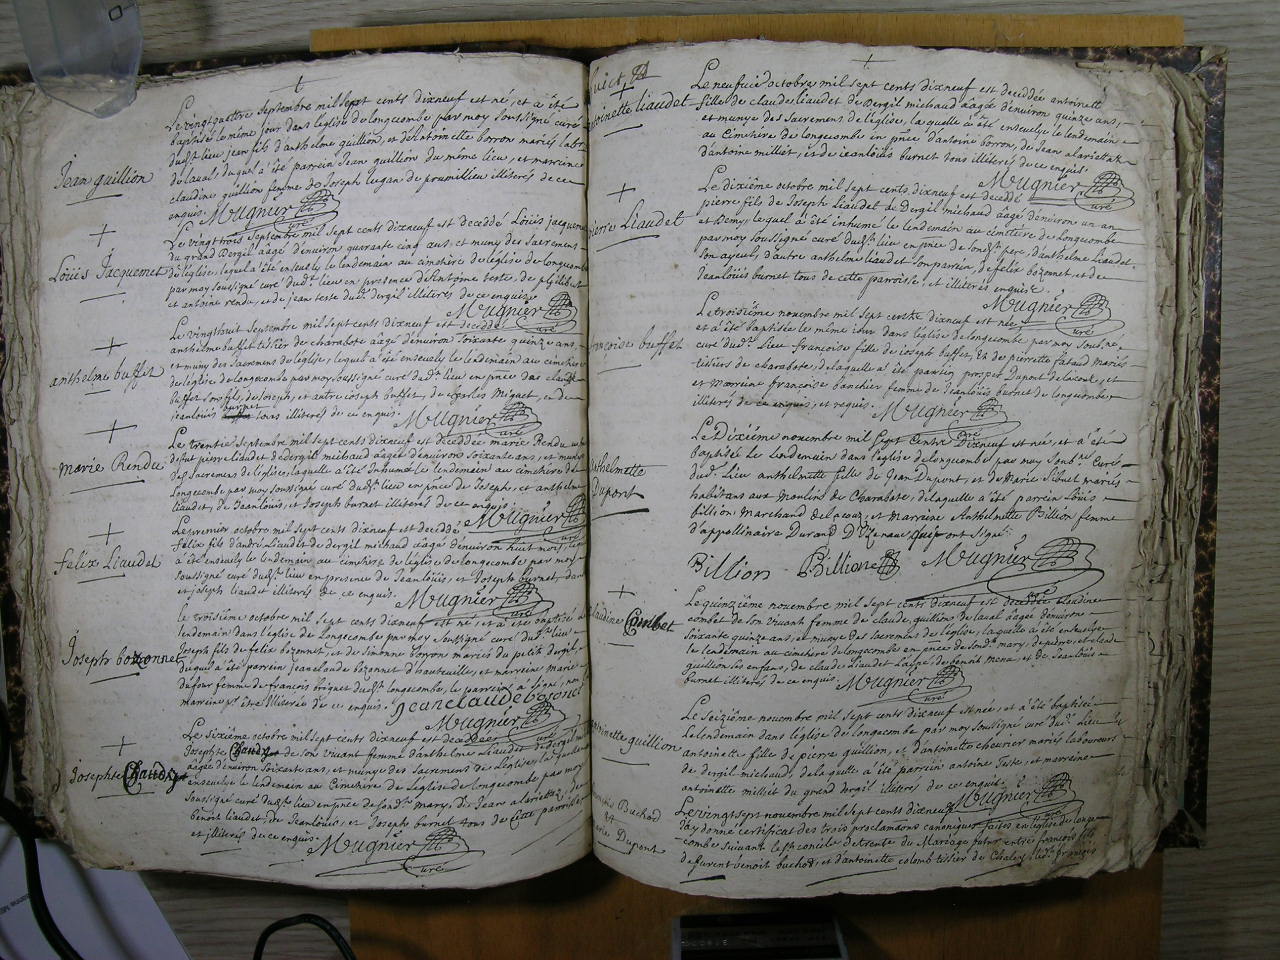 Jean guillion
Le vingtquattre septembre mil sept cents dixneuf est né, et a été
baptisé le même jour dans l'eglise de longecombe par moy soussigné curé
dud.t lieu jean fils d'anthelme guillion, et d'antoinette borron mariés
de laval duquel a été parrein Jean guillion du même lieu, et marreine
claudine guillion femme de Joseph lugan de poumillieu illiterés de ce
enquis. Mugnier curé
Loüis Jacquemet
Le vingttrois septembre mil sept cents dixneuf est decedé Loüis jacquemet
du grand Dergil aagé d'environ quarante cinq ans, et muny des sacremens
de l'eglise, lequel a été enseuely le lendemain au cimetiere de l'eglise de longecombe
par moy soussigné curé dud.t lieu en presence d'Antoine teste, de
et antoine rendu, et de jean teste dud.t dergil illiterés de ce enquis
Mugnier curé
anthelme buffet
Le vingthuit septembre mil sept cents dixneuf est decedé
anthelme buffet tissier de charabote aagé d'environ soixante quinze ans,
et muny des sacremens de l'eglise, lequel a été enseuely le lendemain au cimetiere
de l'eglise de longecombe par moy soussigné curé dud.t lieu en pnce de claude
buffet son fils, de Joseph, et autre ioseph buffet, de charles Miguet, et de
jeanloüis burnet tous illiterés de ce enquis. Mugnier curé
marie Rendu
Le trentie septembre mil sept cents dixneuf est decedée marie Rendu
defut pierre liaudet de dergil michaud aagée d'environ soixante ans, et munye
des sacremens de l'eglise, laquelle a été Inhumée le lendemain au cimetiere de
Longecombe par moy soussigné curé dud.t lieu en pnce de Joseph, et anthelme
liaudet, de Jeanloüis, et Joseph burnet illiterés de ce enquis.
Mugnier curé
felix Liaudet
Le premier octobre mil sept cents dixneuf est decedé
felix fils d'andré Liaudet de dergil michaud aagé d'environ huit mois, lequel
a été enseuely le lendemain au cimetiere de l'eglise de longecombe par moy
soussigné curé dud.t lieu en presence de Jeanloüis, et Joseph burnet,
et joseph liaudet illiterés de ce enquis. Mugnier curé
Joseph bozonnet
Le troisiéme octobre mil sept cents dixneuf est né, et a été baptisé le
lendemain dans l'eglise de Longecombe par moy soussigné curé dud.t lieu
Joseph fils de felix bozonnet, et de simonne borron mariés du petit dergil,
duquel a été parrein jeanclaude bozonnet d'hauteuille, et marreine marie
dufour femme de francois briguet dud.t longecombe, le parrein a signé, non
marreine p.r être Illiterée de ce enquis. Jean claude bosonet
Mugnier curé
Josephte Chaudy
Le sixiéme octobre mil sept cents dixneuf est decedée
Josephte Chaudy de son vivant femme d'anthelme Liaudet de dergil
aagée d'environ soixante ans, et munye des sacremens de l'eglise, laquelle
enseuelye le lendemain au Cimetiere de l'eglise de longecombe par moy
soussigné curé dud.t lieu en pnce de sond.t mary, de Jean alariettaz, de
benoit liaudet, de Jeanloüis et Joseph burnet tous de cette parroisse,
et jlliterés de ce enquis. Mugnier curé
antoinette liaudet
Le neufviè octobre mil sept cents dixneuf est decedée antoinette
fille de claude liaudet de Dergil michaud aagée d'environ quinze ans,
et munye des sacremens de l'eglise, laquelle a été enseuelye le lendemain
au cimetiere de longecombe en pnce d'antoine borron, de Jean alariettaz
d'antoine milliet, et de jeanloüis burnet tous illiterés de ce enquis.
Mugnier curé
pierre Liaudet
Le dixiéme octobre mil sept cents dixneuf est decedé
pierre fils de Joseph Liaudet de Dergil michaud aagé d'environ un an
et Demy, lequel a été inhumé le lendemain au cimetiere de longecombe
par moy soussigné curé dud.t lieu en pnce de sond.t pere, d'anthelme liaudet
son ayeul, d'autre anthelme liaudet son parrein, de felix bozonnet, et de
Jeanloüis burnet tous de cette parroisse, et illiterés enquis.
Mugnier curé
françoise buffet
Le troisiéme novembre mil sept centz dixneuf est née
et a été baptisée le même jour dans l'eglise de longecombe par moy soub.né
curé dud.t Lieu francoise fille de ioseph buffet, et de pierrette fataud mariés
tissiers de charabote, de laquelle a été parrein prosper Dupont de lacoux, et
et Marreine francoise banchier femme de Jeanloüis burnet de longecombe
illiterés de ce enquis, et requis. Mugnier curé
anthelmette Dupont
Le Dixiéme novembre mil sept Centz Dixneuf est née, et a été
baptisée le Lendemain dans l'eglise de longecombe par moy soub.né Curé
dud.t Lieu anthelmette fille de Jean Dupont, et de Marie Sibuet mariés
habitans aux moulins de Charabote, de laquelle a été parrein Loüis
billion marchand de lacoux, et Marreine Anthelmette Billion femme
d'appollinaire Durand D'Ozenaux qui ont signé.
Billion Billione Mugnier curé
claudine Combet
Le quinziéme novembre mil sept cents dixneuf est decedée claudine
combet de son vivant femme de claude guillion de laval aagée d'environ
soixante quinze ans, et munye des sacremens de l'eglise, laquelle a été enseuelye
le lendemain au cimetiere de longecombe en pnce de sond.t mary, d'andre, et claude
guillion ses enfans, de claude Liaudet Layné, de benoit mena, et de jeanloüis
burnet illiterés de ce enquis. Mugnier curé
antoinette guillion
Le seiziéme novembre mil sept cents dixneuf est née, et a été baptisée
Le lendemain dans l'eglise de longecombe par moy soussigné curé dud.t Lieu
antoinette fille de pierre guillion, et d'antoinette cheurier mariés laboureurs
de dergil michaud, de laquelle a été parrein antoine Teste, et marreine
antoinette milliet du grand dergil illiterés de ce enquis.
Mugnier curé
françois Buchod
et
marie Dupont
Le vingtsept novembre mil sept cents dixneuf
J'ay donné certificat des trois proclamaons canoniques faites en l'eglise de longe-
combe suivant le st concile de trente du Mariage futur entre francois fils
de furent benoit buchod, et d'antoinette colomb tissier de Chaley, led.t francois